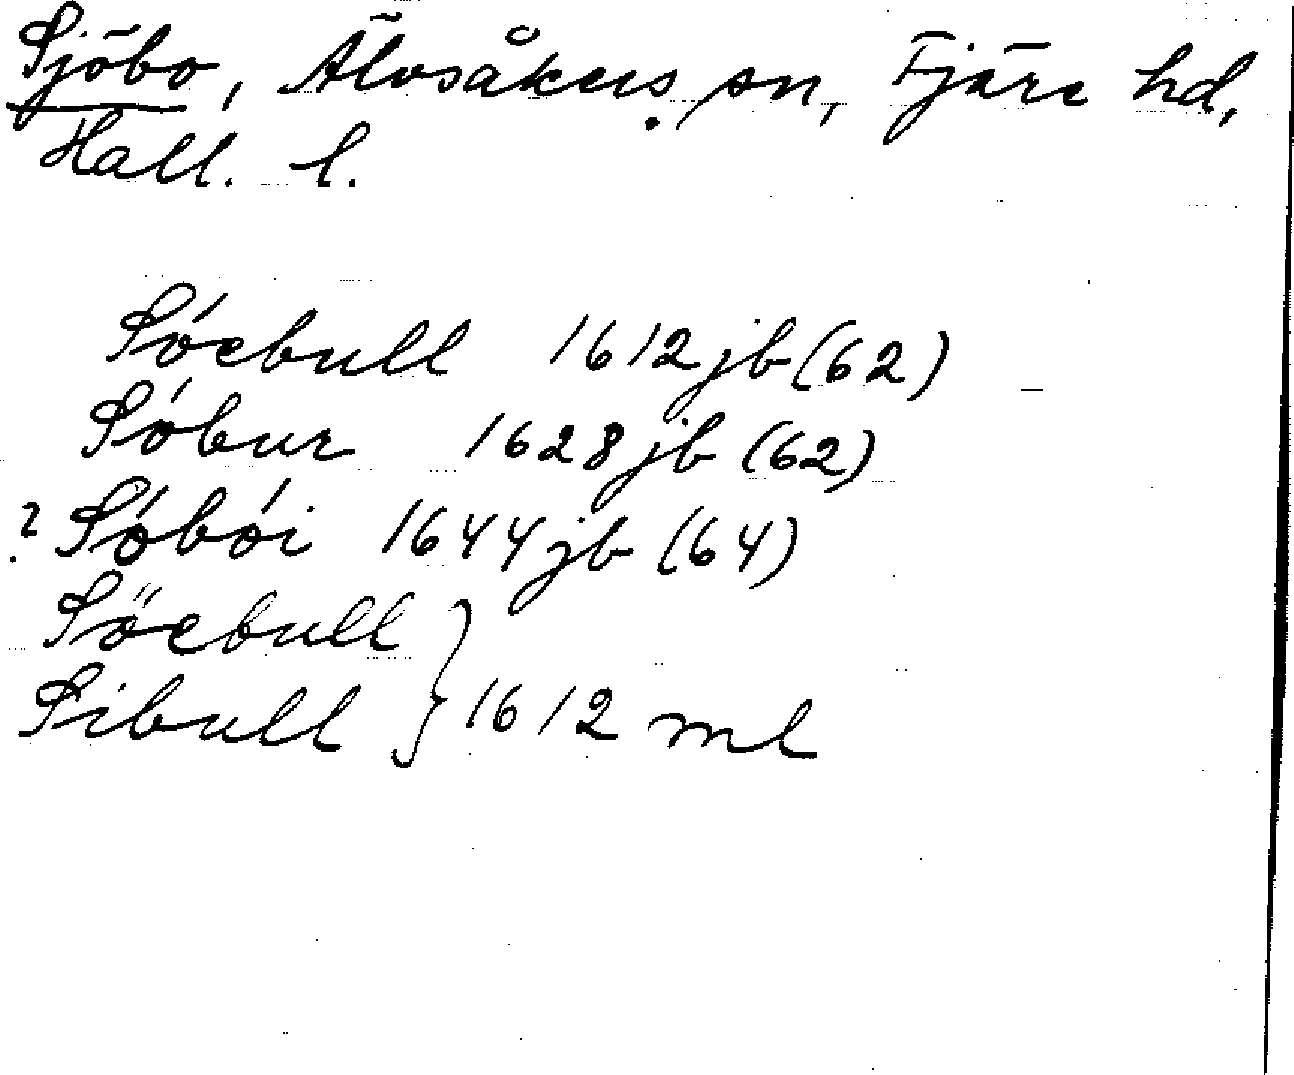 Sjöbo, Älvsåkers sn, Fjäre hd,
Hall. l.
Sóebull 1612 jb (62)
Sóbur 1628 jb (62)
? Sóbói 1644 jb (64)
Söebull
Sibull } 1612 ml